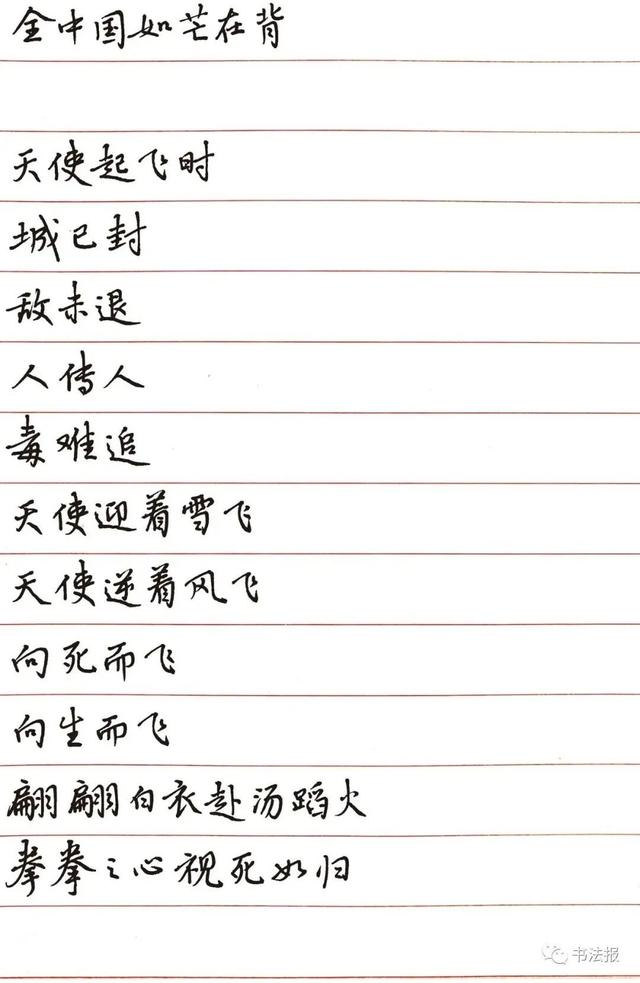 全中国如芒在背
天使起飞时
城已封
敌未退
人传人
毒难追
天使迎着雪飞
天使逆着风飞
向死而飞
向生而飞
翩翩白衣赴汤蹈火
拳拳之心视死如归
书法报